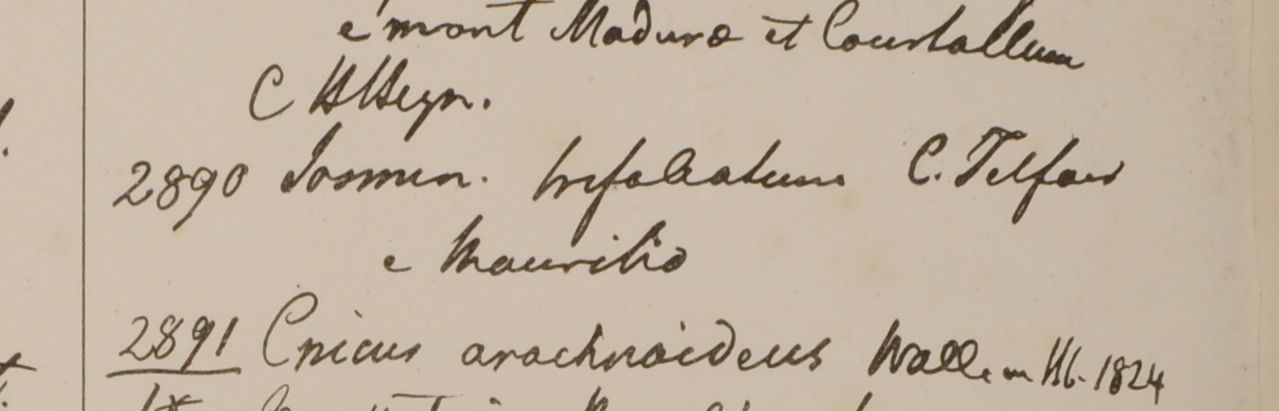 e mont Madura et Courtallum
C HHeyn.
2890 Jasmin. trifoliatum C. Telfair
e Mauritio
2891 Cnicus arachnoideus Wall. in Hb. 1824